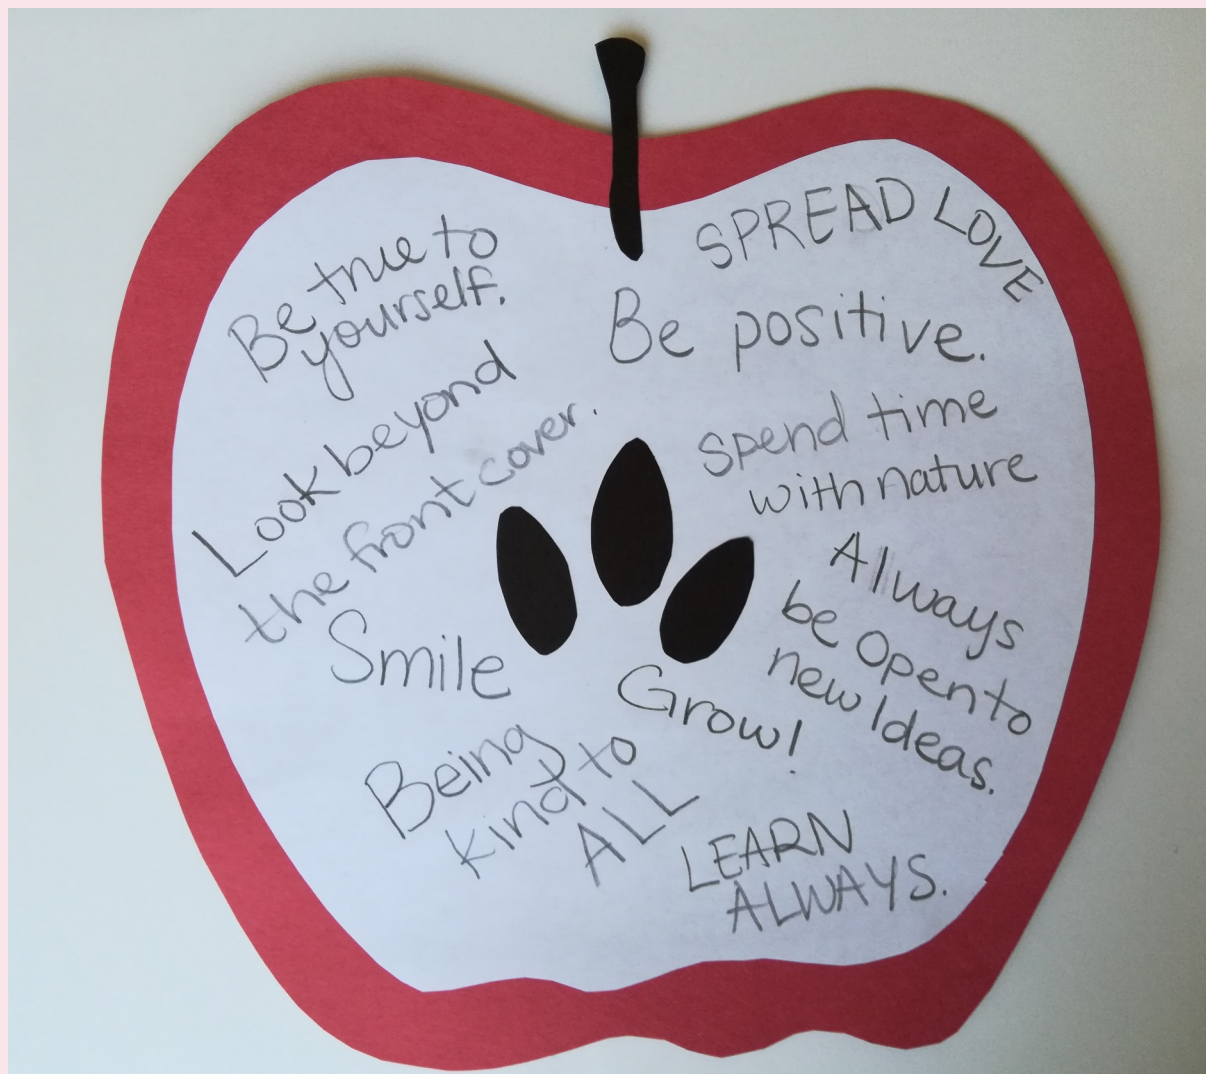 Be true to
yourself.
SPREAD LOVE
Be positive.
Look beyond
the front cover.
Spend time
with nature
Always
be open to
new Ideas.
Smile
Grow!
Being
kind to
ALL
LEARN
ALWAYS.